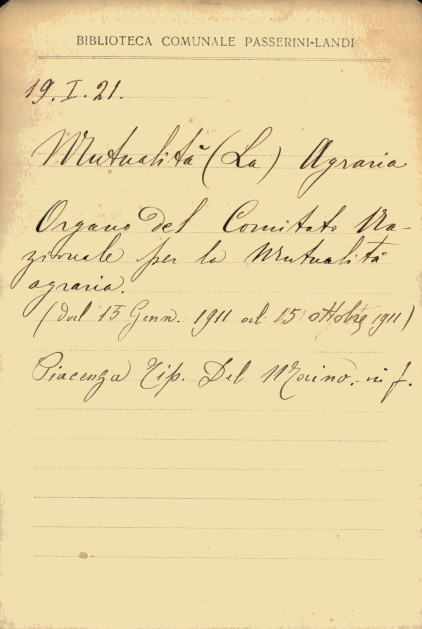 BIBLIOTECA COMUNALE PASSERINI-LANDI
19.I.21.
Mutualità (La) Agraria
Organo del Comitato Na-
zionale per la Mutualità
agraria.
(dal 15 Genn. 1911 al 15 ottobre 1911)
Piacenza Tip. Del Maino. in f.